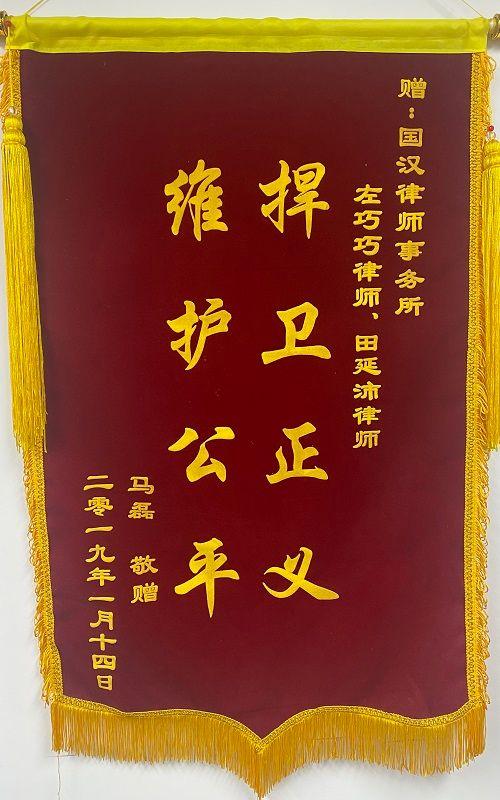 赠：国汉律师事务所
左巧巧律师、田延沛律师
捍卫正义
维护公平
马磊 敬赠
二零一九年一月十四日